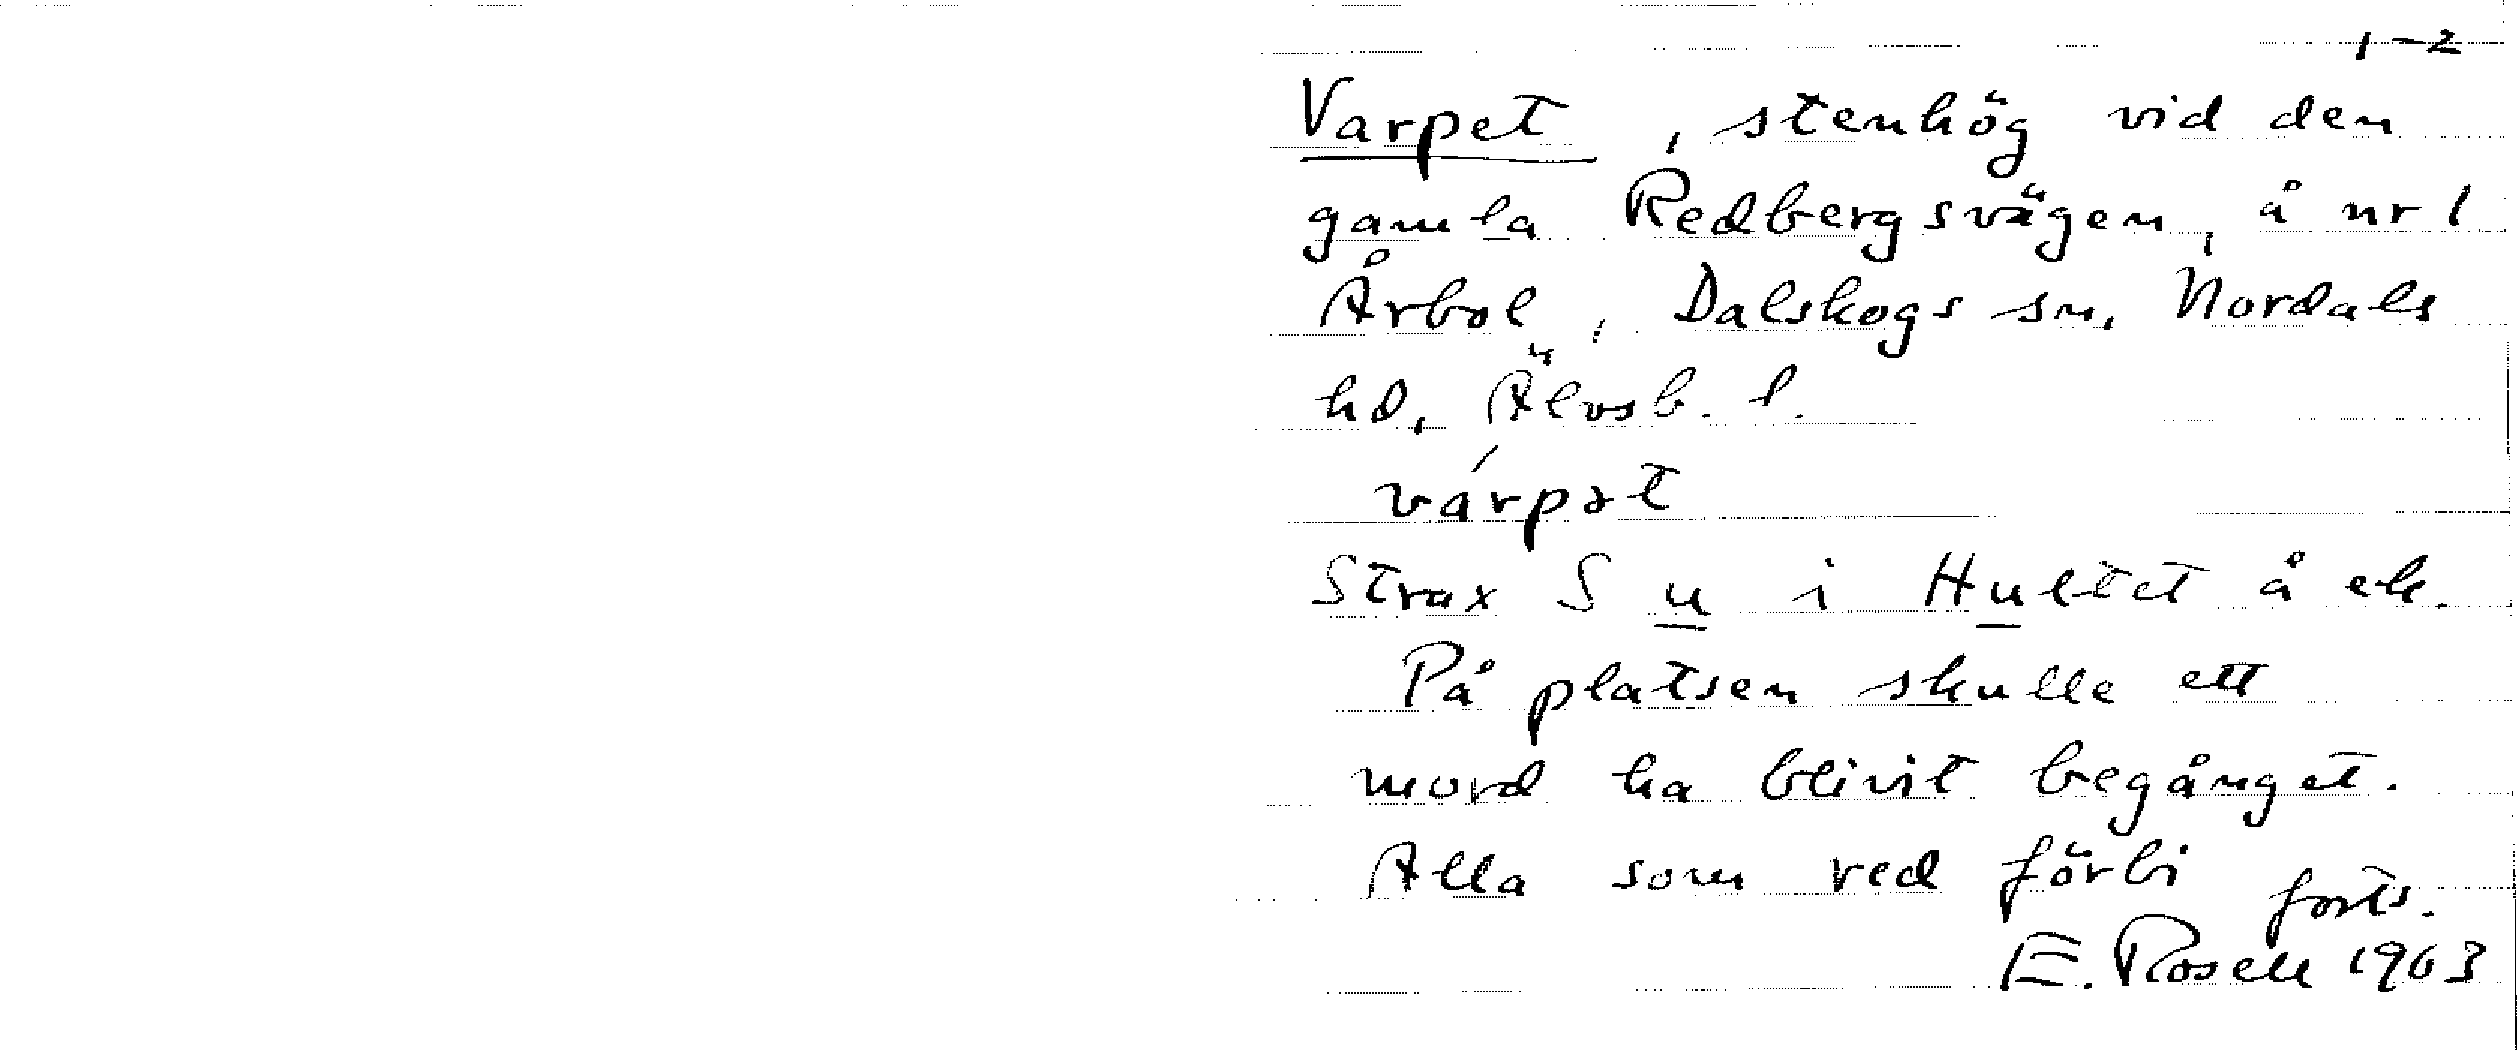 1-2
Varpet, stenhög vid den
gamla Redbergsvägen, å nr 1
Årbol, Dalskogs sn, Nordals
hd, Älvsb. l.
várpət
Strax S u i Hultet å ek.
På platsen skulle ett
mord ha blivit begånget.
Alla som red förbi
forts.
E. Rosell 1963